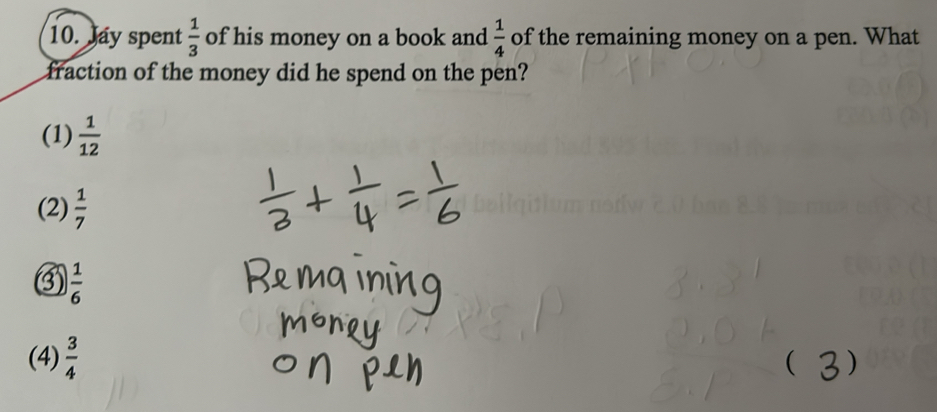 10. Jay spent 1/3 of his money on a book and 1/4 of the remaining money on a pen. What
fraction of the money did he spend on the pen?
(1) 1/12
(2) 1/7
(3) 1/6
(4) 3/4
1/3 + 1/4 = 1/6
Remaining
money
on pen
( 3 )